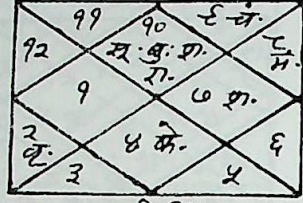 ११ १० ९ चं.
१२ सू. बु. ८
रा. मं.
१ ७ श.
२ ४ के. ६
३ ५